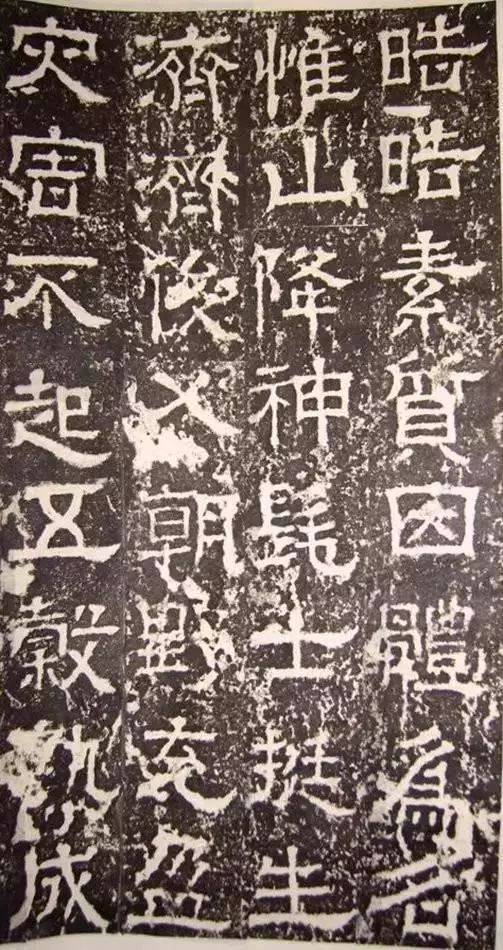 晧晧素質因體爲名
惟山降神髦士挺生
濟濟俊乂朝野充盈
灾害不起五穀熟成